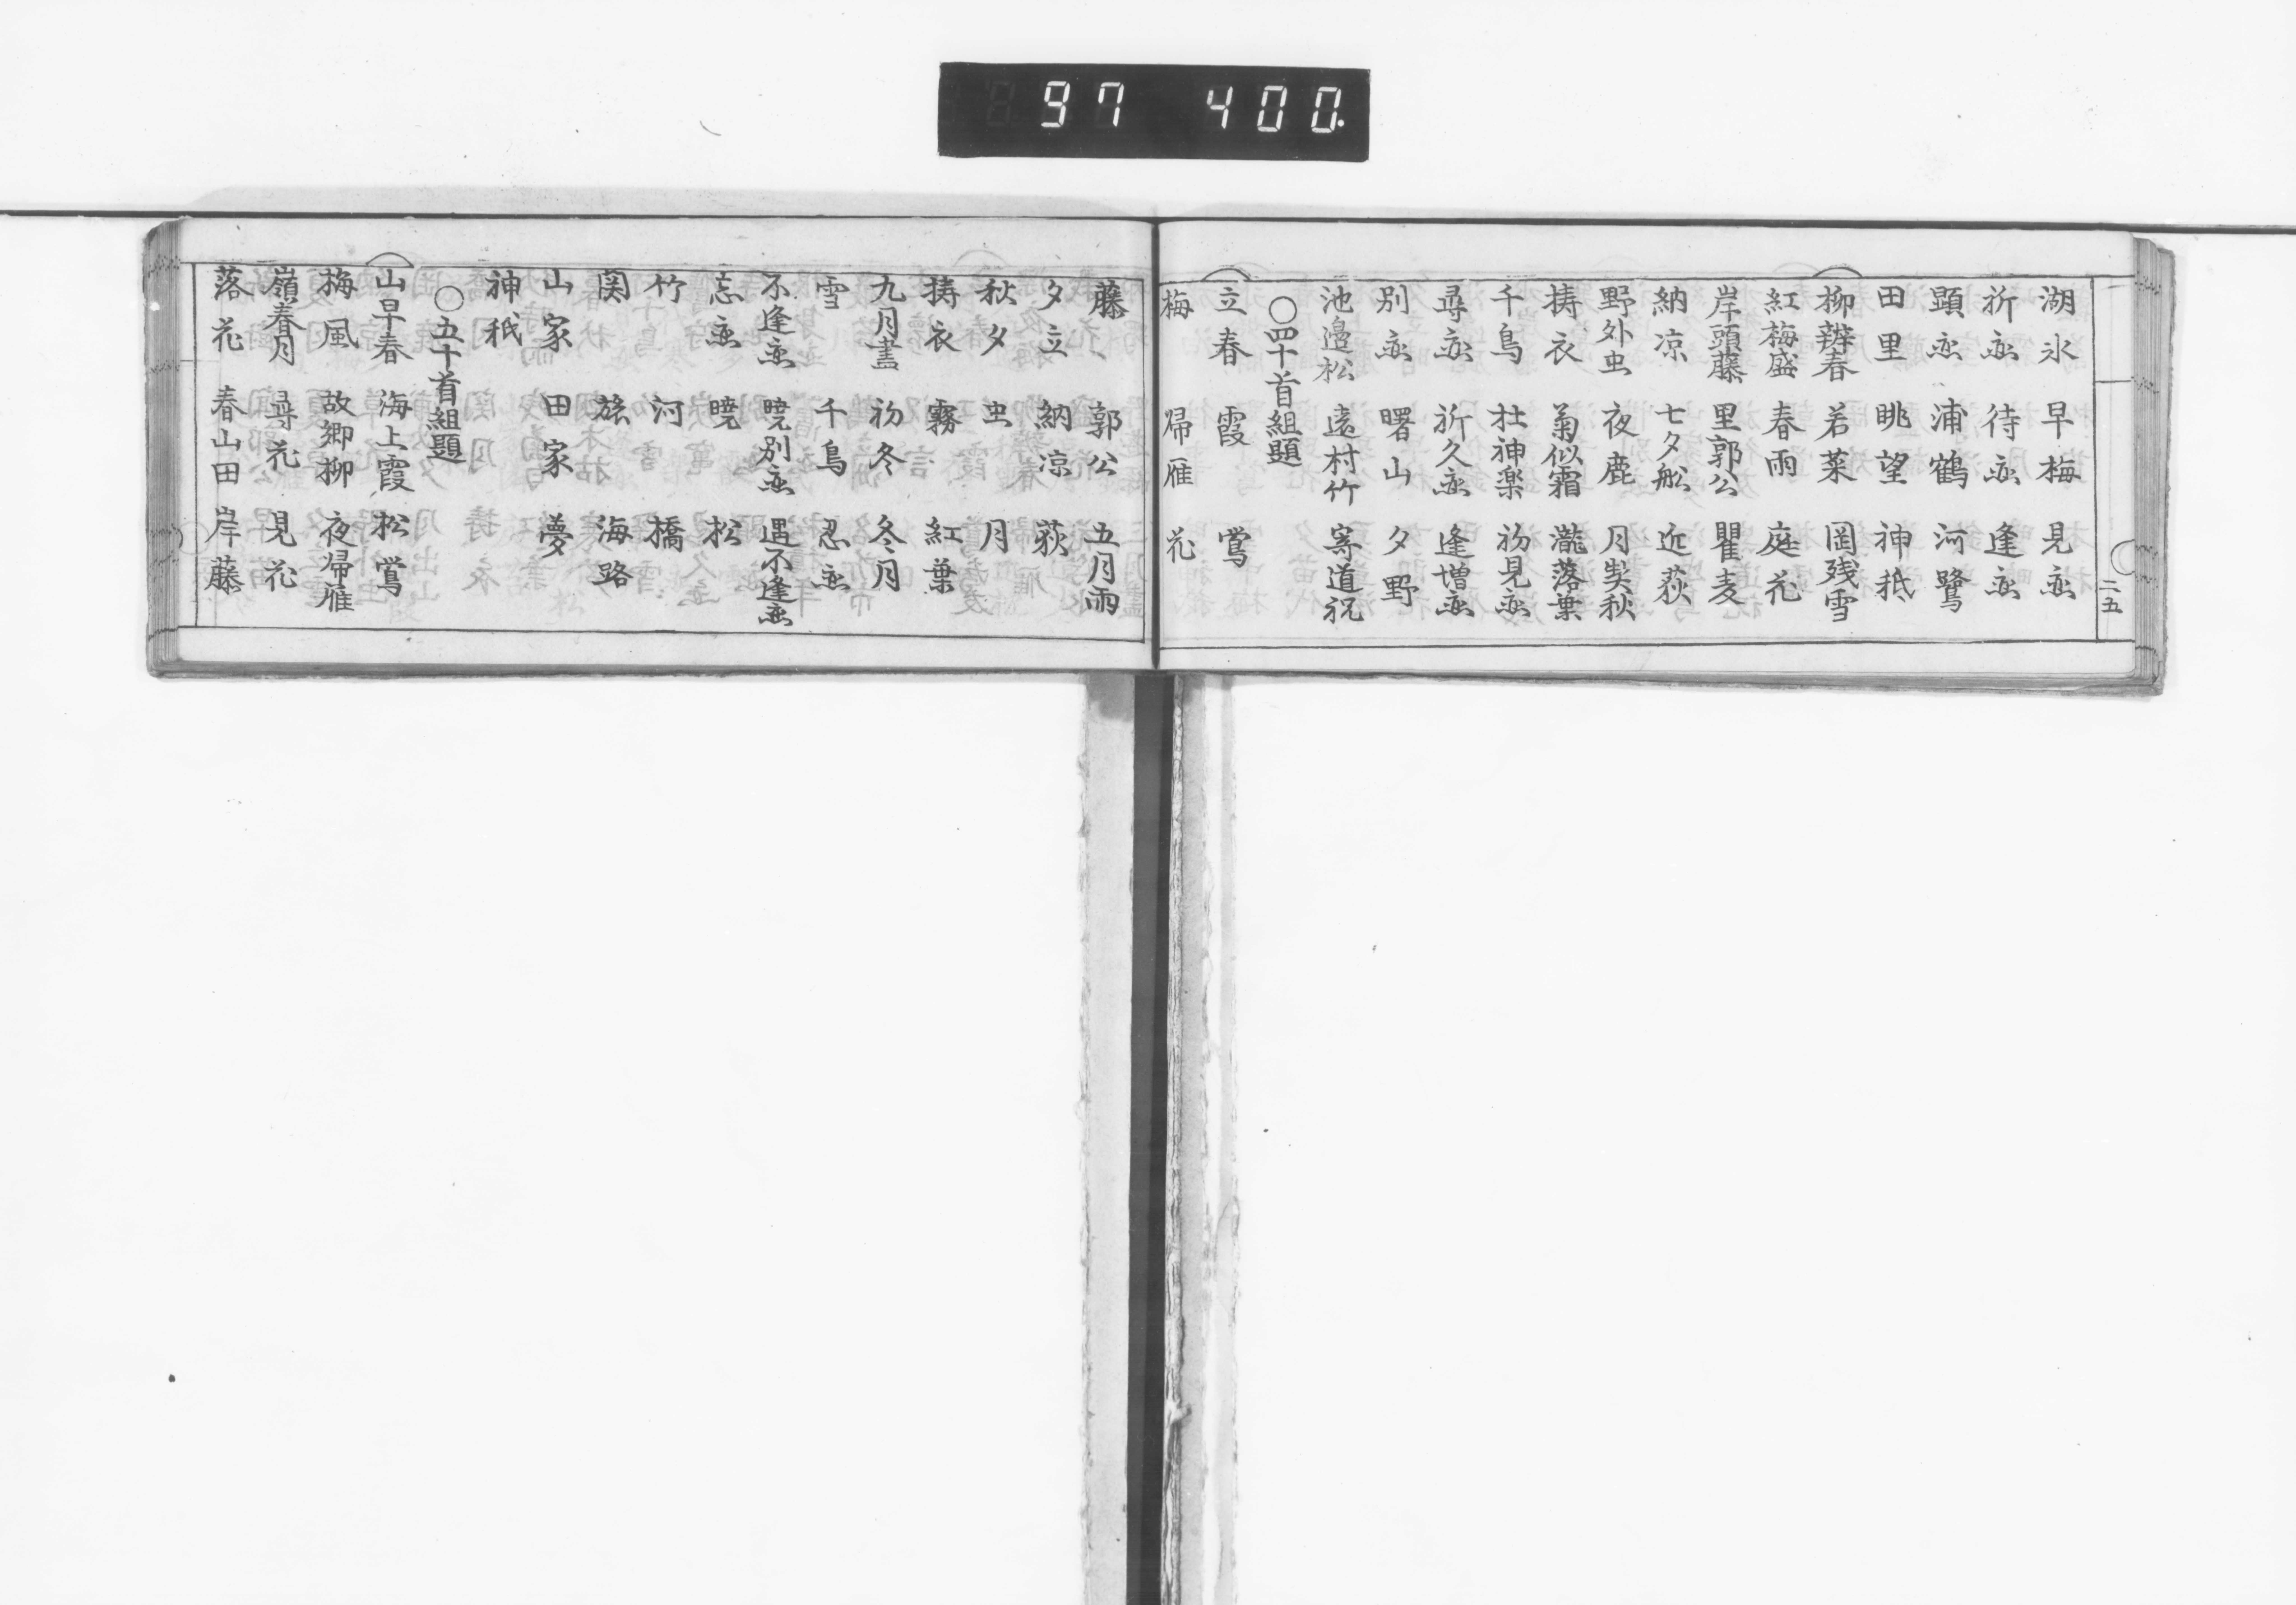 97 400.
二五
湖氷 早梅 見恋
祈恋 待恋 逢恋
顕恋 浦鶴 河鷺
田里 眺望 神祇
柳辨春 若菜 岡残雪
紅梅盛 春雨 庭花
岸頭藤 里郭公 瞿麦
納凉 七夕舩 近荻
野外虫 夜鹿 月契秋
擣衣 菊似霜 瀧落葉
千鳥 社神楽 初見恋
尋恋 祈久恋 逢増恋
別恋 曙山 夕野
池邉松 遠村竹 寄道祝
○四十首組題
立春 霞 鴬
梅 帰雁 花
藤 郭公 五月雨
夕立 納凉 荻
秋夕 虫 月
擣衣 霧 紅葉
九月盡 初冬 冬月
雪 千鳥 忍恋
不逢恋 暁別恋 遇不逢恋
忘恋 暁 松
竹 河 橋
関 旅 海路
山家 田家 夢
神祇
○五十首組題
山早春 海上霞 松鴬
梅風 故郷柳 夜帰雁
嶺春月 尋花 見花
落花 春山田 岸藤